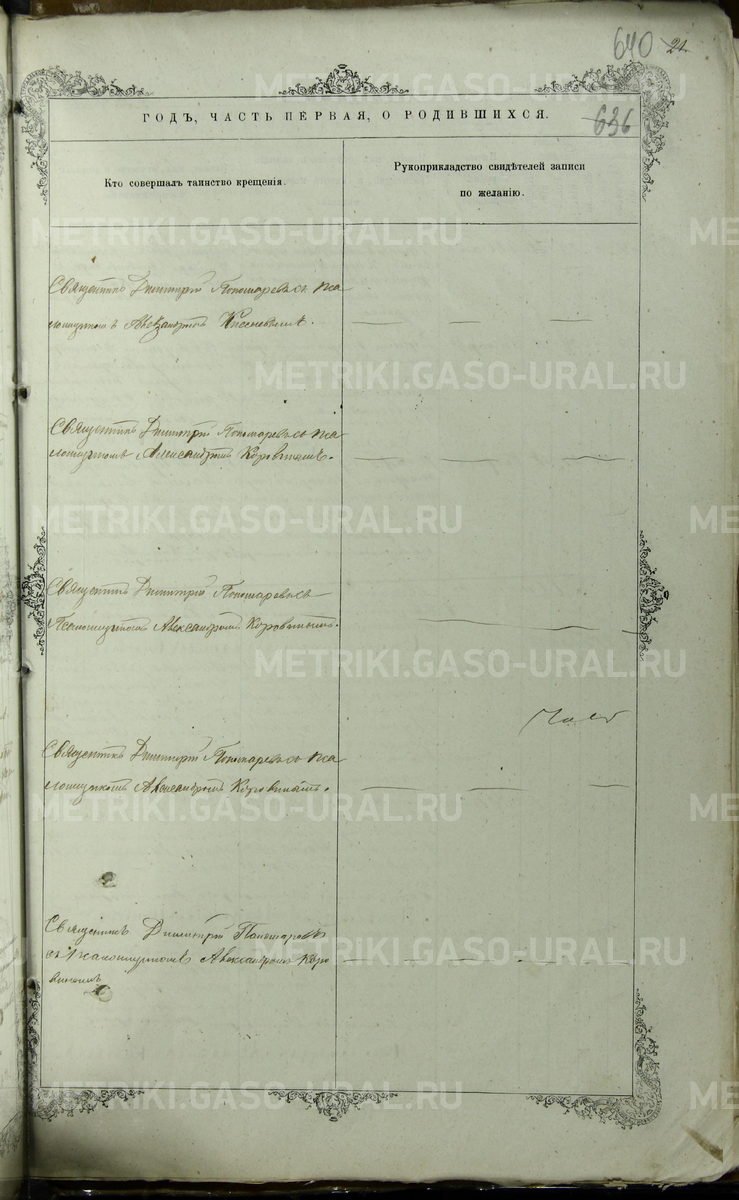 640 21.
ГОДЪ, ЧАСТЬ ПЕРВАЯ, О РОДИВШИХСЯ.
636
Кто совершалъ таинство крещенія.
Рукоприкладство свидѣтелей записи
по желанію.
Священникъ Димитрій Пономаревъ съ Пса
ломщикомъ
Священникъ Димитрій Пономаревъ съ Пса
ломщикомъ Александромъ Коровинымъ.
Священникъ Димитрій Пономаревъ съ
Псаломщикомъ Александромъ Коровинымъ.
Священникъ Димитрій Пономаревъ съ Пса
ломщикомъ Александромъ Коровинымъ.
Священникъ Димитрій Пономаревъ
съ Псаломщикомъ Александромъ Коро
винымъ
METRIKI.GASO-URAL.RU